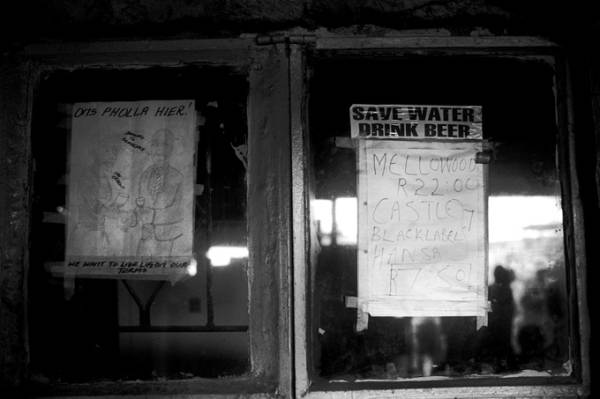 ONS PHOLLA HIER!
WE WANT TO LIVE LIFE ON OUR
TERMS
SAVE WATER
DRINK BEER
MELLOWOOD
R22.00
CASTLE
BLACKLABEL
HANSA
R7.50